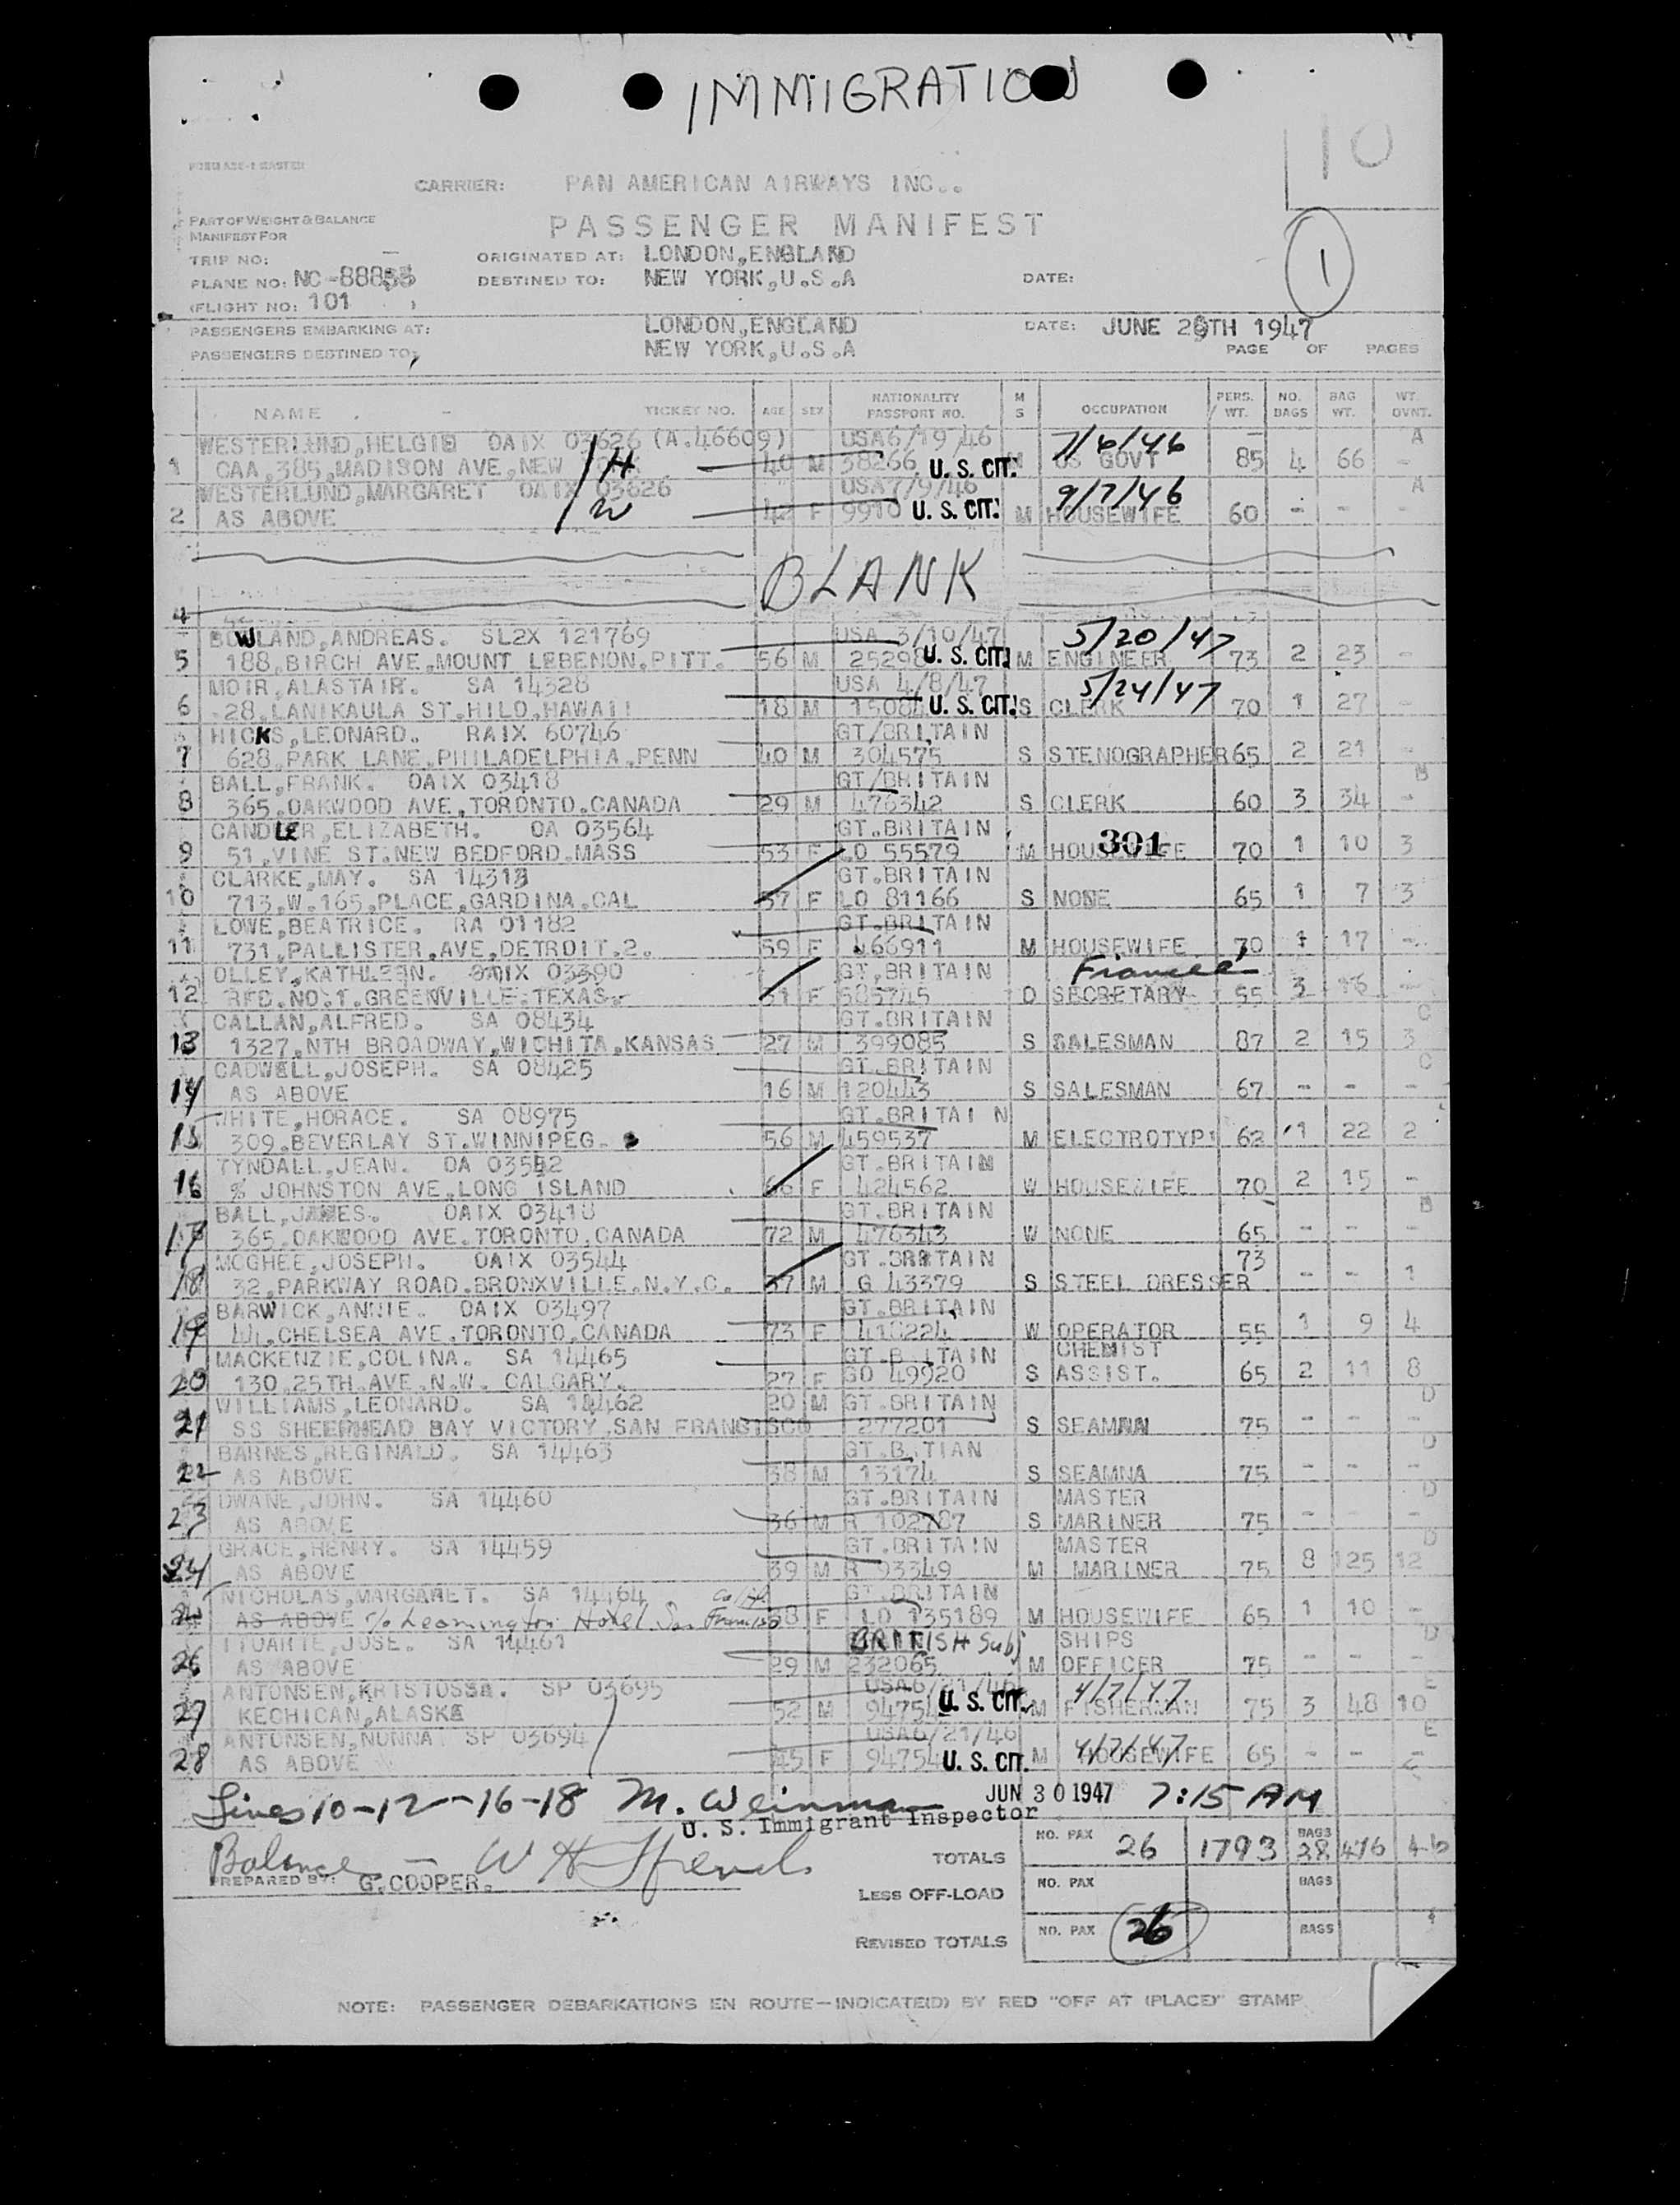 IMMIGRATION
10
CARRIER: PAN AMERICAN AIRWAYS INC..
PART OF WEIGHT & BALANCE
MANIFEST FOR
PASSENGER MANIFEST
1
TRIP NO: —
ORIGINATED AT: LONDON,ENGLAND
PLANE NO: NC-88855
DESTINED TO: NEW YORK,U.S.A
DATE:
(FLIGHT NO: 101 )
PASSENGERS EMBARKING AT: LONDON,ENGLAND
DATE: JUNE 29TH 1947
PASSENGERS DESTINED TO: NEW YORK,U.S.A
PAGE OF PAGES
NAME TICKET NO. AGE SEX NATIONALITY PASSPORT NO. M S OCCUPATION PERS. WT. NO. BAGS BAG WT. WT. OVNT.
WESTERLUND,HELGIE OAIX 03626 (A.46609) USA6/19/46 7/6/46 A
1 CAA,385,MADISON AVE,NEW H 40 M 38266 U. S. CIT. M US GOVT 85 4 66 -
WESTERLUND,MARGARET OAIX 03626 USA7/9/46 9/7/46 A
2 AS ABOVE W 42 F 9910 U. S. CIT. M HOUSEWIFE 60 - - -
BLANK
4
BOWLAND,ANDREAS. SL2X 121769 USA 3/10/47 5/20/47
5 188,BIRCH AVE,MOUNT LEBENON.PITT. 56 M 25298 U. S. CIT. M ENGINEER 73 2 23 -
MOIR,ALASTAIR. SA 14328 USA 4/8/47 5/24/47
6 28,LANIKAULA ST.HILO,HAWAII 18 M 15084 U. S. CIT. S CLERK 70 1 27 -
HICKS,LEONARD. RAIX 60746 GT/BRITAIN
7 628,PARK LANE,PHILADELPHIA,PENN 40 M 304575 S STENOGRAPHER 65 2 21 -
BALL,FRANK. OAIX 03418 GT/BRITAIN B
8 365.OAKWOOD AVE,TORONTO.CANADA 29 M 476342 S CLERK 60 3 34 -
CANDLER,ELIZABETH. OA 03564 GT.BRITAIN 301
9 51,VINE ST.NEW BEDFORD.MASS 53 F LO 55579 M HOUSEWIFE 70 1 10 3
CLARKE,MAY. SA 14313 GT.BRITAIN
10 713,W.165,PLACE,GARDINA.CAL 57 F LO 81166 S NONE 65 1 7 3
LOWE,BEATRICE. RA 01182 GT.BRITAIN
11 731,PALLISTER,AVE,DETROIT.2. 59 F 466911 M HOUSEWIFE 70 1 17 -
OLLEY,KATHLEEN. OAIX 03390 GT.BRITAIN Fianceé
12 RFD.NO.1.GREENVILLE.TEXAS. 31 F 585745 D SECRETARY 55 3 16 -
CALLAN,ALFRED. SA 08434 GT.BRITAIN C
13 1327,NTH BROADWAY,WICHITA,KANSAS 27 M 399085 S SALESMAN 87 2 15 3
CADWELL,JOSEPH. SA 08425 GT.BRITAIN C
14 AS ABOVE 16 M 120443 S SALESMAN 67 - - -
WHITE,HORACE. SA 08975 GT.BRITAI N
15 309.BEVERLAY ST.WINNIPEG. 56 M 459537 M ELECTROTYPI 62 1 22 2
TYNDALL,JEAN. OA 03552 GT.BRITAIN
16 % JOHNSTON AVE,LONG ISLAND 66 F 424562 W HOUSEWIFE 70 2 15 -
BALL,JAMES. OAIX 03418 GT.BRITAIN B
17 365.OAKWOOD AVE.TORONTO.CANADA 72 M 476343 W NONE 65 - - -
MCGHEE,JOSEPH. OAIX 03544 GT.BRITAIN 73
18 32,PARKWAY ROAD.BRONXVILLE.N.Y.C. 37 M G 43379 S STEEL DRESSER - - 1
BARWICK,ANNIE. OAIX 03497 GT.BRITAIN
19 44,CHELSEA AVE.TORONTO.CANADA 73 F 418224 W OPERATOR 55 1 9 4
MACKENZIE,COLINA. SA 14465 GT.B ITAIN CHEMIST
20 130.25TH.AVE.N.W. CALGARY. 27 F GO 49920 S ASSIST. 65 2 11 8
WILLIAMS,LEONARD. SA 14462 20 M GT.BRITAIN D
21 SS SHEEPHEAD BAY VICTORY,SAN FRANCISCO 277201 S SEAMAN 75 - - -
BARNES,REGINALD. SA 14463 GT.B.TIAN D
22 AS ABOVE 38 M 13174 S SEAMNA 75 - - -
DWANE,JOHN. SA 14460 GT.BRITAIN MASTER D
23 AS ABOVE 36 M R 102787 S MARINER 75 - - -
GRACE,HENRY. SA 14459 GT.BRITAIN MASTER D
24 AS ABOVE 39 M R 93349 M MARINER 75 8 125 12
NICHOLAS,MARGARET. SA 14464 GT.BRITAIN
AS ABOVE c/o Leamington Hotel San Francisco Calif. 38 F LO 135189 M HOUSEWIFE 65 1 10 -
ITUARTE,JOSE. SA 14461 BRITISH Subj SHIPS D
26 AS ABOVE 29 M 232065 M OFFICER 75 - - -
ANTONSEN,KRISTOSSA. SP 03695 USA6/21/46 4/7/47 E
27 KECHICAN,ALASKA 52 M 94754 U. S. CIT. M FISHERMAN 75 3 48 10
ANTONSEN,NUNNA SP 03694 USA6/21/46 4/7/47 E
28 AS ABOVE 45 F 94754 U. S. CIT. M HOUSEWIFE 65 - - -
Lines 10-12-16-18 M. Weinman JUN 30 1947 7:15 AM
U. S. Immigrant Inspector
Balance — W H
PREPARED BY: G.COOPER.
TOTALS NO. PAX 26 1793 BAGS 38 476
LESS OFF-LOAD NO. PAX BAGS
REVISED TOTALS NO. PAX 26 BAGS
NOTE: PASSENGER DEBARKATIONS EN ROUTE—INDICATE(D) BY RED "OFF AT (PLACE)" STAMP